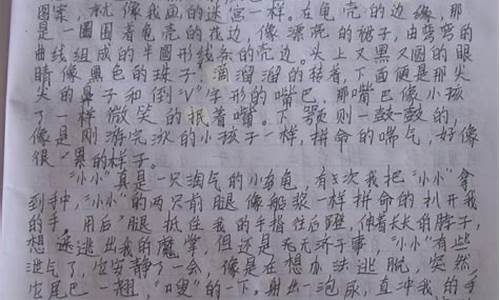 图案，就像我画的迷宫一样。在龟壳的边缘，那
是一圈围着龟壳的花边，像漂亮的裙子，由弯弯的
曲线组成的半圆形线条的壳边。头上又黑又圆的眼
睛像黑色的珠子，滴溜溜的转着，下面便是那尖
尖的鼻子和倒“V”字形的嘴巴，那嘴巴像小孩
了一样微笑的抿着嘴。下颚则一鼓一鼓的，
像是刚游完泳的小孩子一样，拼命的喘气，好像
很累的样子。
“小小”真是一只淘气的小乌龟，有次我把“小小”拿
到手中，“小小”的两只前腿像船桨一样拼命的扒开我
的手，用后腿抵住我的手指往后蹬，伸着长长的脖子，
想逃出我的魔掌，但还是无无济于事，“小小”有些
泄气了，它安静了一会，像是在想办法逃脱，突然
它尾巴一翘，“嗖”的一下，射出一泡尿，直冲我的手